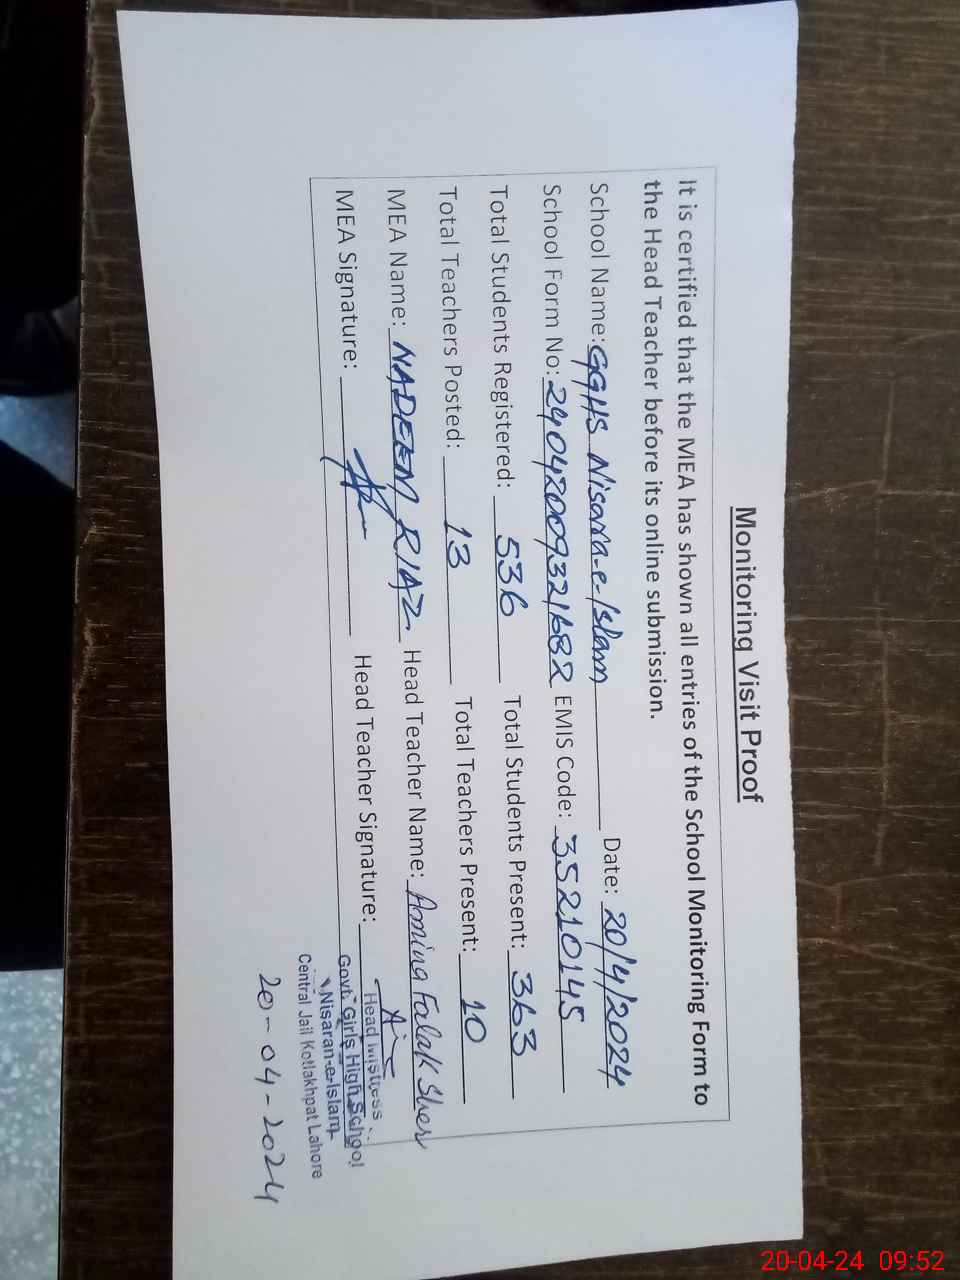 Monitoring Visit Proof
It is certified that the MEA has shown all entries of the School Monitoring Form to
the Head Teacher before its online submission.
School Name: GGHS Nisara-e-Islam Date: 20/4/2024
School Form No: 24042009321682 EMIS Code: 35210145
Total Students Registered: 536 Total Students Present: 363
Total Teachers Posted: 13 Total Teachers Present: 10
MEA Name: NADEEM RIAZ Head Teacher Name: Amina Falak Sher
MEA Signature: Head Teacher Signature:
Head Mistress
Govt. Girls High School
Nisaran-e-Islam
Central Jail Kotlakhpat Lahore
20-04-2024
20-04-24 09:52